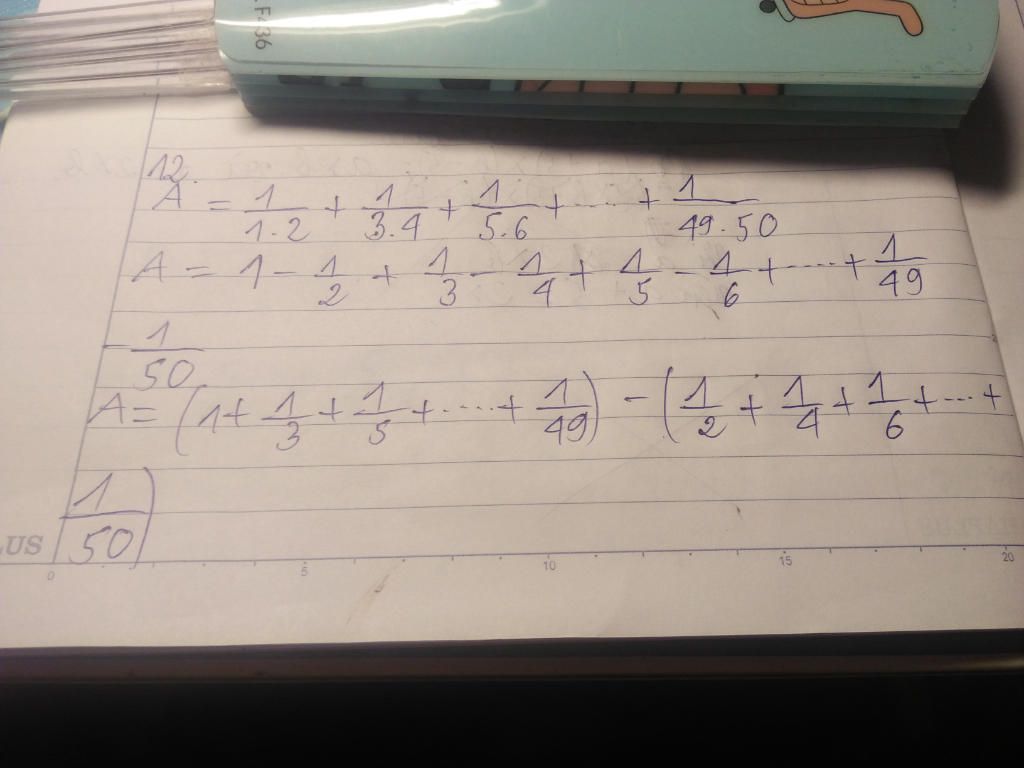 F436
12.
A = 1/1.2 + 1/3.4 + 1/5.6 + ..... + 1/49.50
A = 1 - 1/2 + 1/3 - 1/4 + 1/5 - 1/6 + ..... + 1/49
- 1/50
A = (1 + 1/3 + 1/5 + ..... + 1/49) - (1/2 + 1/4 + 1/6 + ... +
1/50)
LUS
0 5 10 15 20